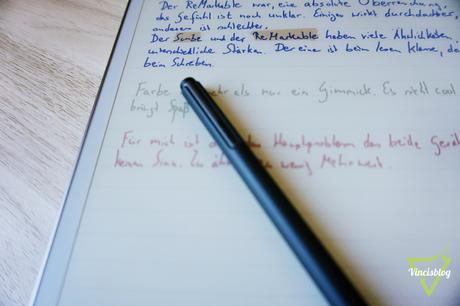 Der ReMarkable war, eine absolute Überraschung,
das Gefühl ist noch unklar. Einiges wirkt durchdachter,
anderes ist schlechter.
Der Scribe und der ReMarkable haben viele Ähnlichkeiten,
unterschiedliche Stärken. Der eine ist beim lesen Klasse, der
beim Schreiben.
Farbe mehr als nur ein Gimmick. Es sieht cool
bringt Spaß
Für mich ist das Hauptproblem das beide Gerät
keinen Sinn. Zu wenig Mehrwert.
Vincisblog